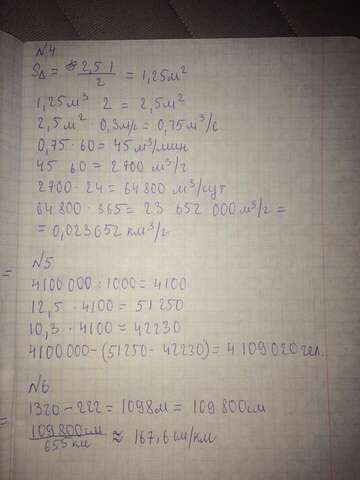 №4
S△ = 2,5 1 / 2 = 1,25 м²
1,25 м³ 2 = 2,5 м²
2,5 м² · 0,3 м/с = 0,75 м³/с
0,75 · 60 = 45 м³/мин
45 60 = 2700 м³/г
2700 · 24 = 64 800 м³/сут
64 800 · 365 = 23 652 000 м³/г =
= 0,023652 км³/г
№5
4100 000 : 1000 = 4100
12,5 · 4100 = 51250
10,3 · 4100 = 42230
4100000 - (51250 - 42230) = 4 109 020 чел.
№6
1320 - 222 = 1098 м = 109 800 см
109 800 см / 655 км ≈ 167,6 см/км